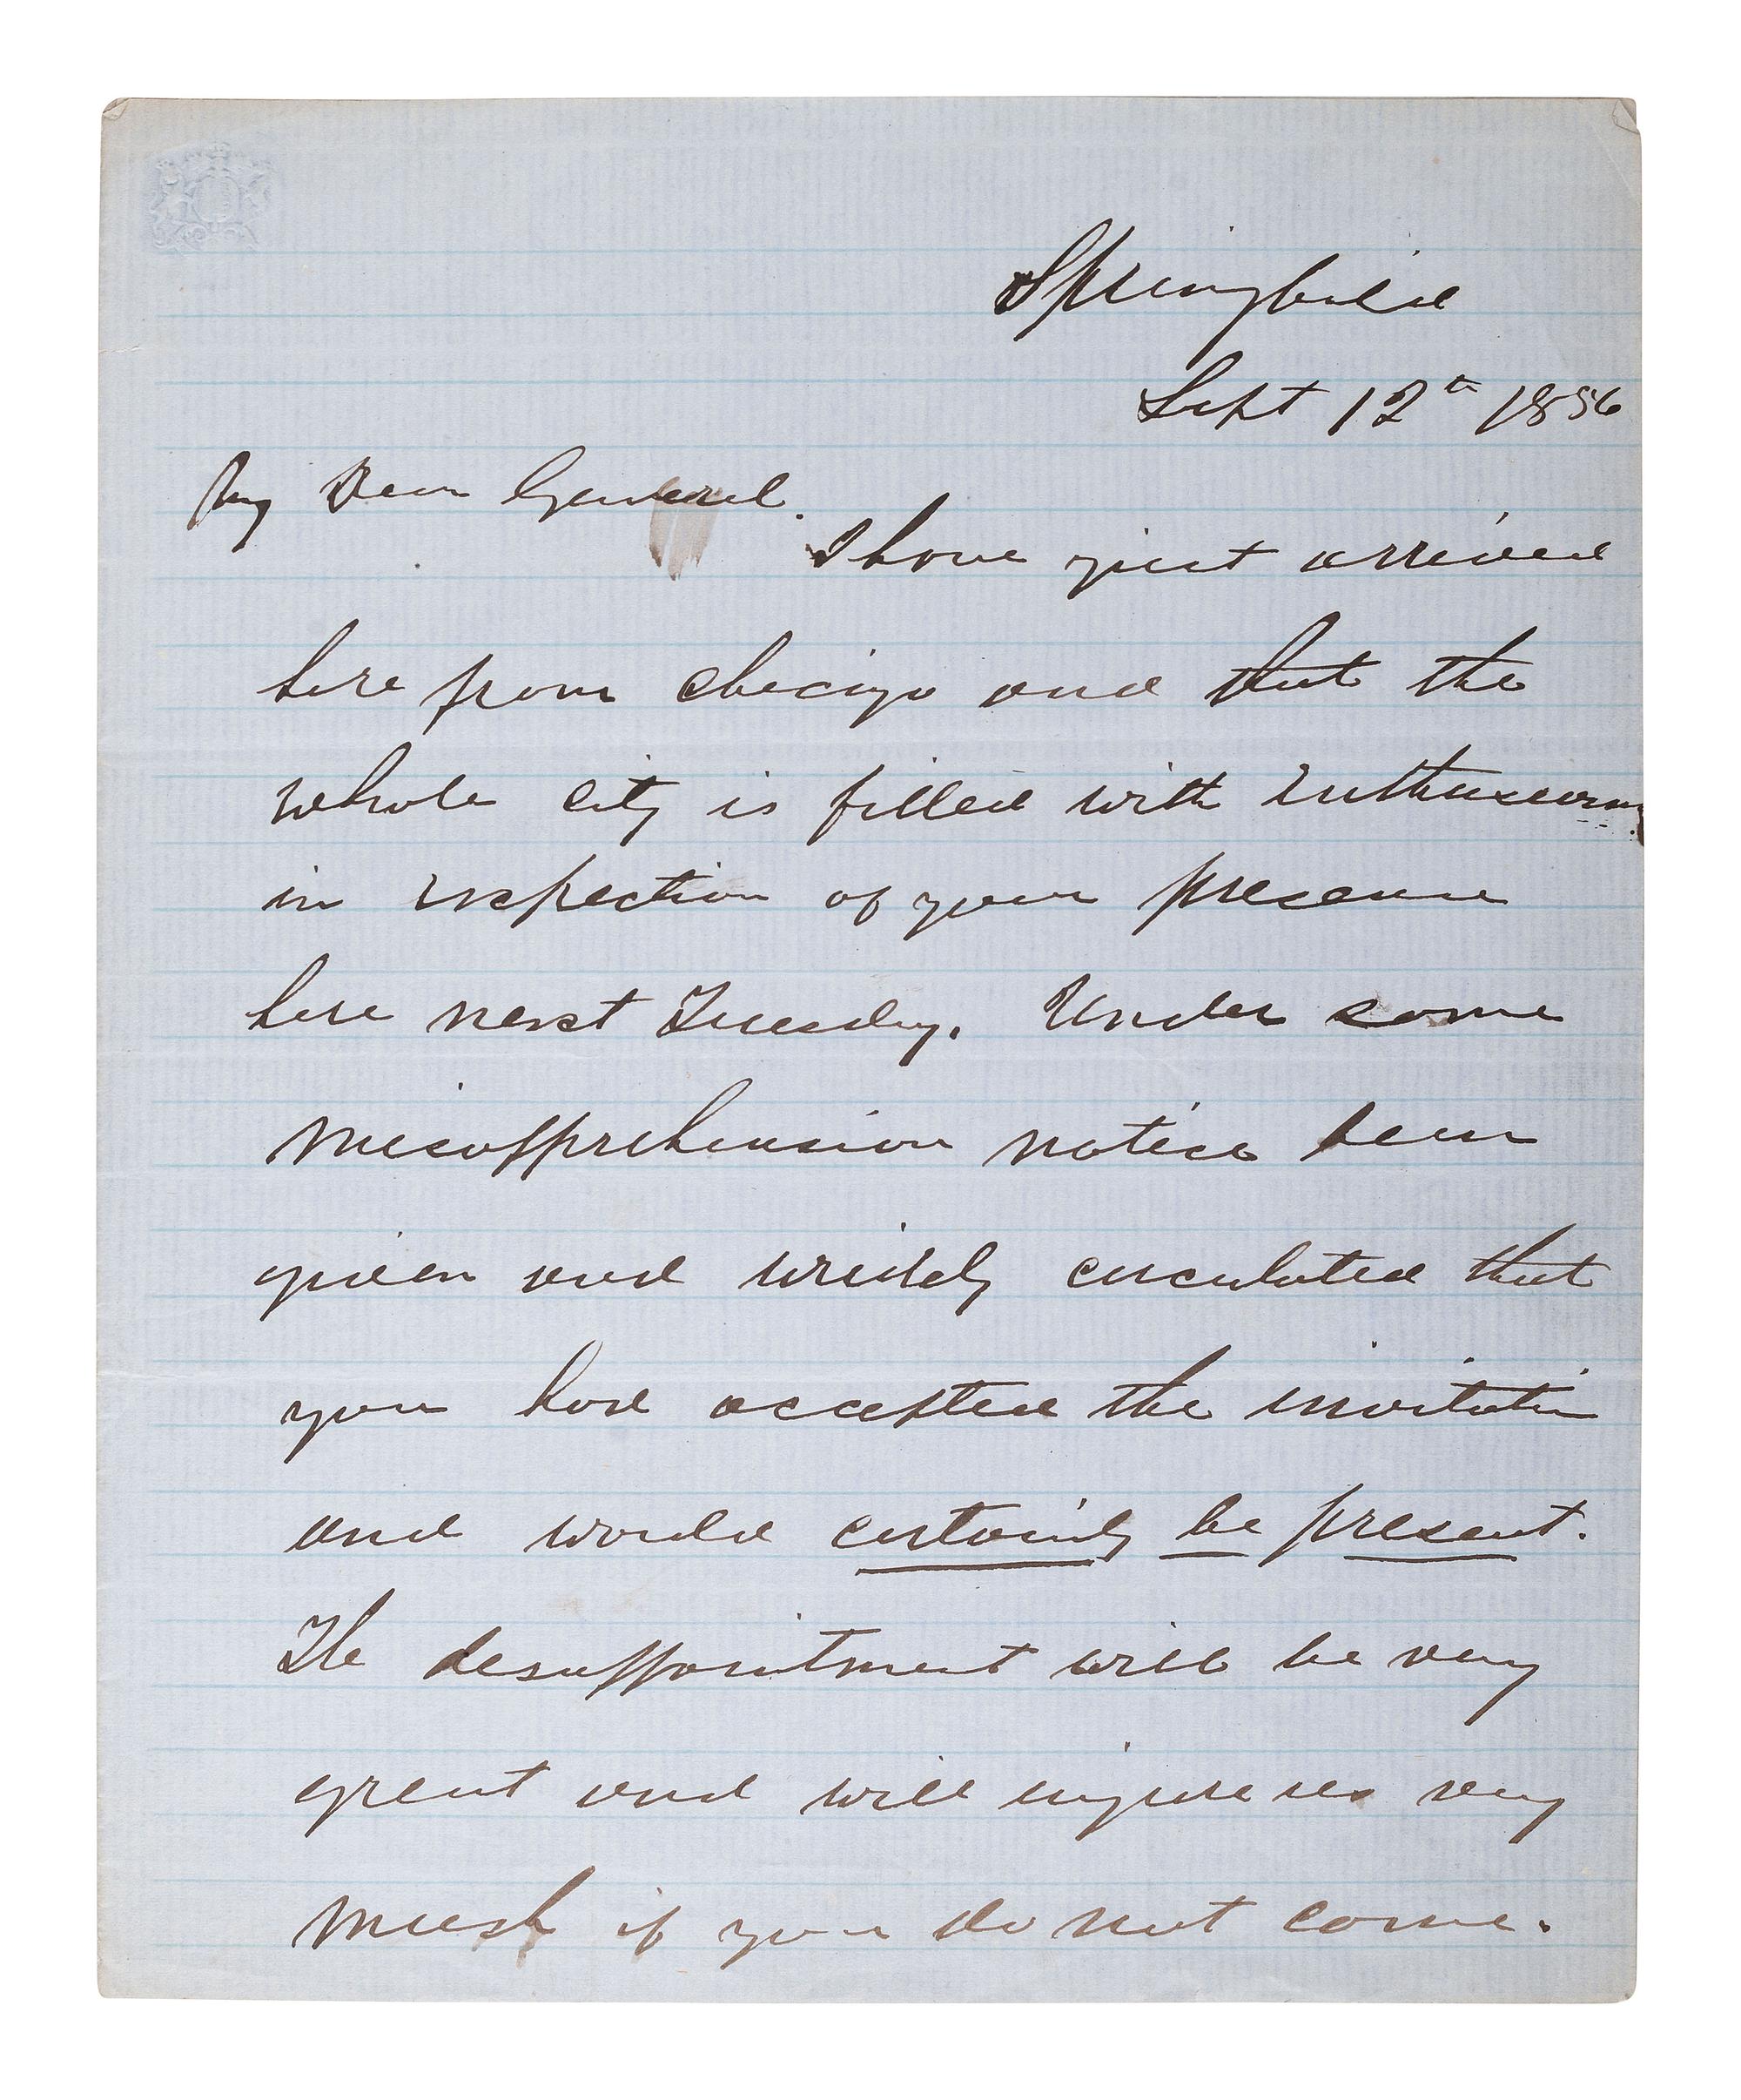 Springfield
Sept 12th 1856
My Dear General.
I have just arrived
here from Chicago and that the
whole city is filled with enthusiasm
in expection of your presence
here next Tuesday. Under some
misapprehension notice been
given and widely circulated that
you had accepted the invitation
and would certainly be present.
The desappointment will be very
great and will injure us very
much if you do not come.